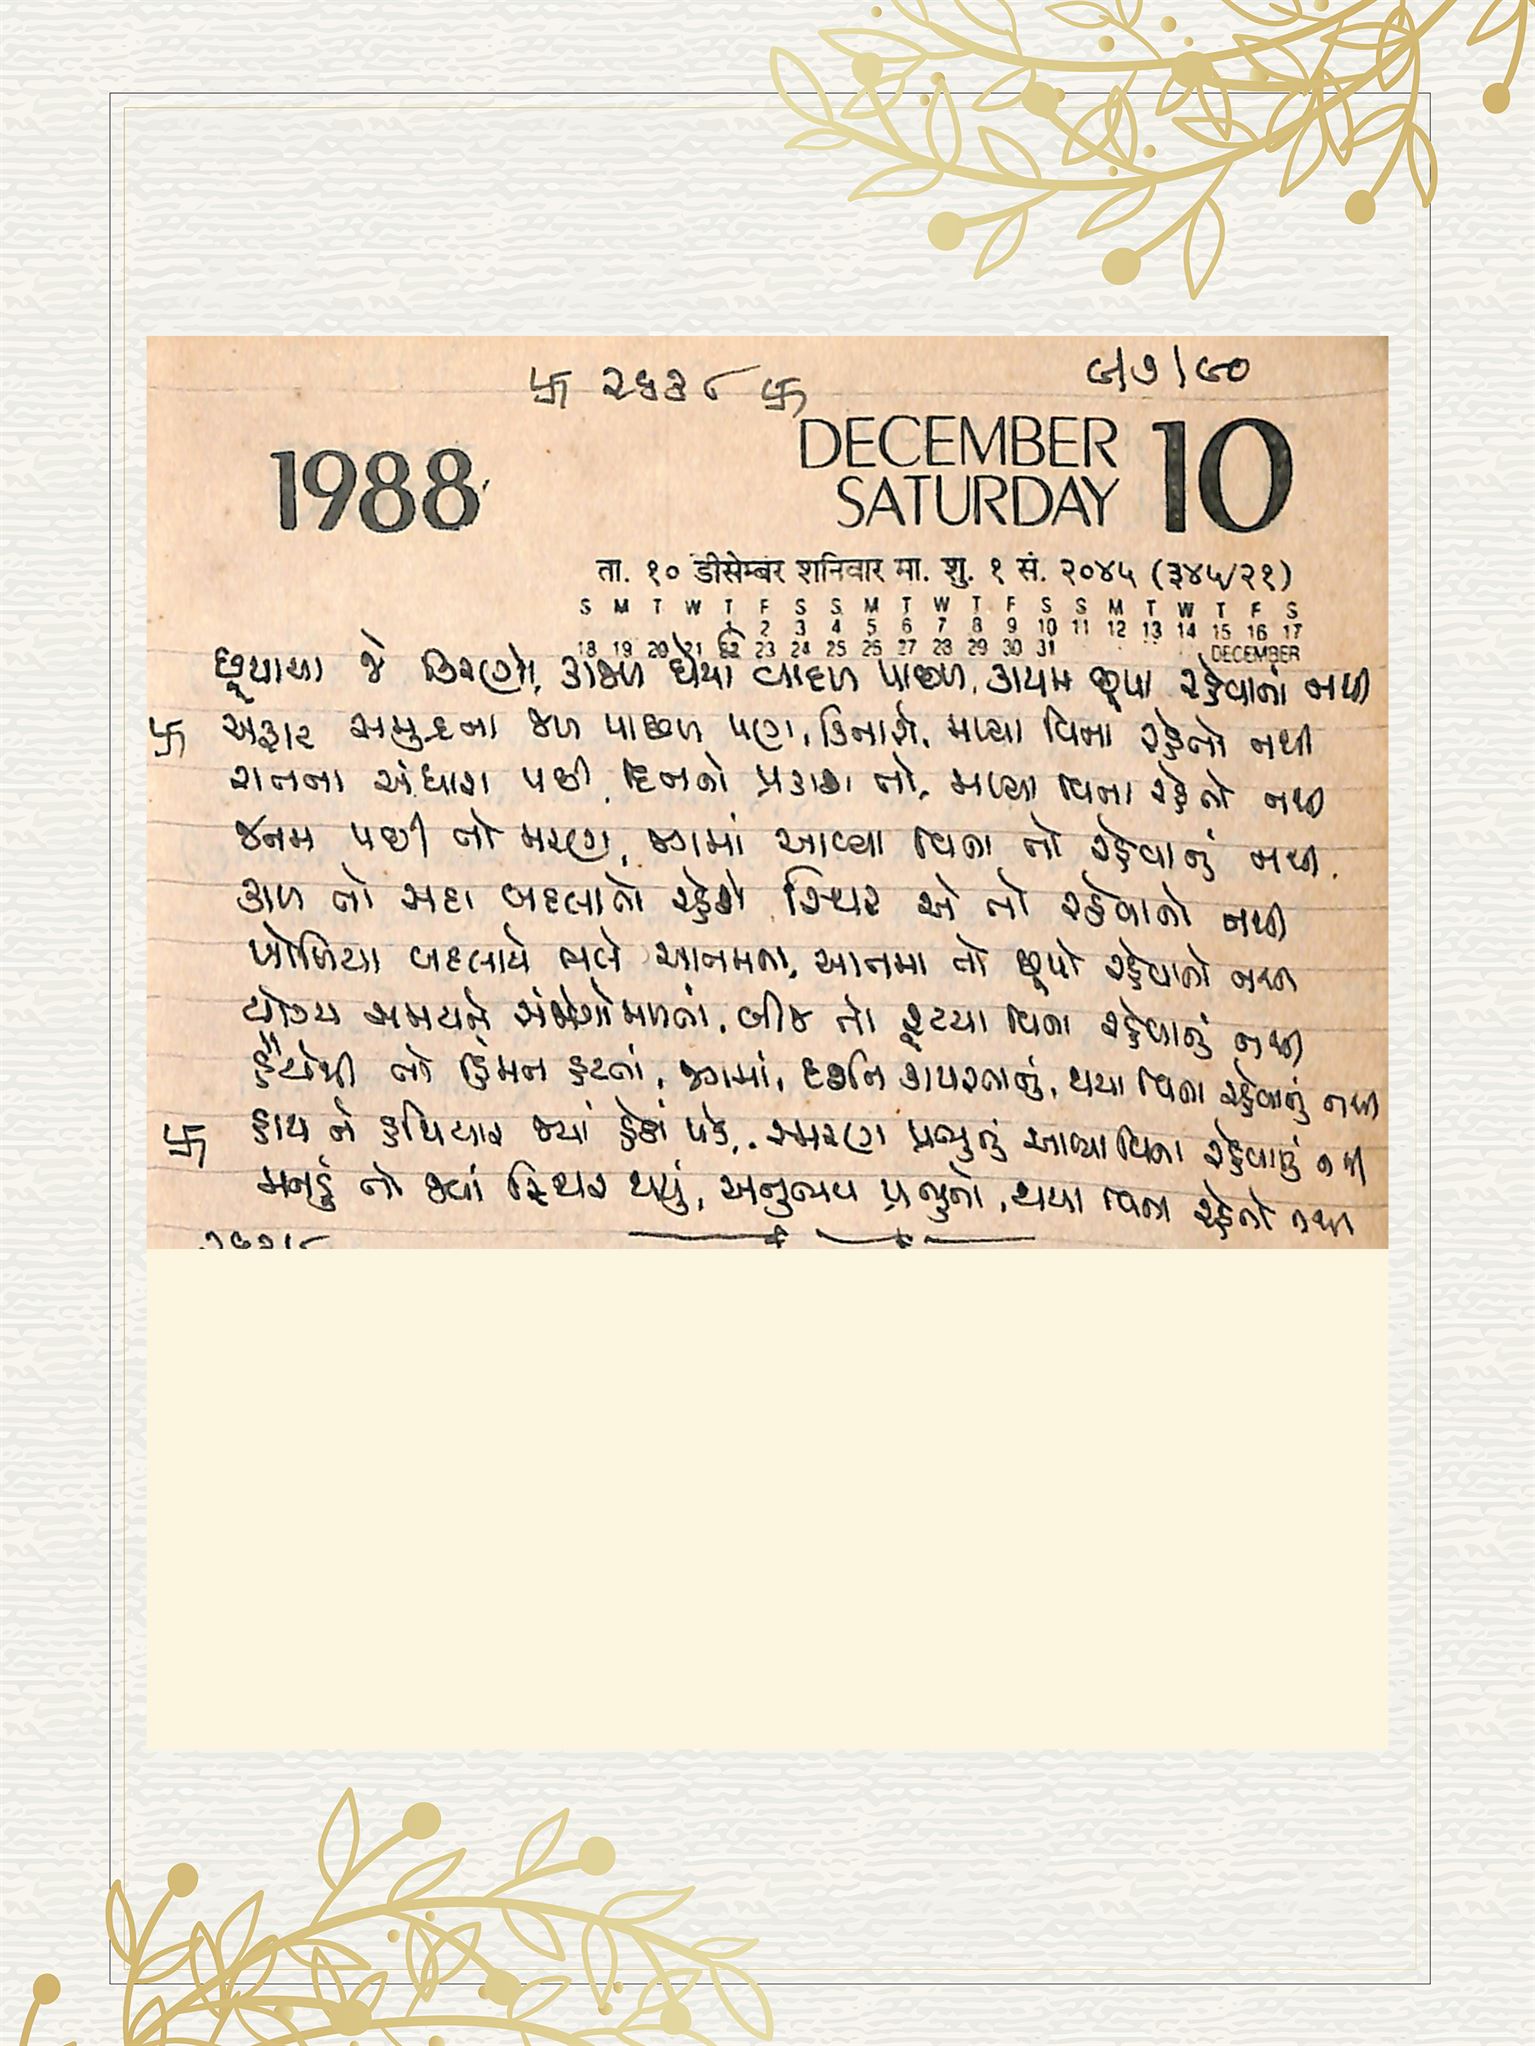 卐 ૨૬૩૮ 卐
૯/૭/૯૦
1988
DECEMBER
SATURDAY
10
ता. १० डीसेम्बर शनिवार मा. शु. १ सं. २०४५ (३४५/२१)
S M T W T F S S M T W T F S S M T W T F S
1 2 3 4 5 6 7 8 9 10 11 12 13 14 15 16 17
18 19 20 21 22 23 24 25 26 27 28 29 30 31
DECEMBER
છૂપાયા જે કિરણો, કાજળ ઘેર્યા વાદળ પાછળ, કાયમ છૂપા રહેવાનાં નથી
卐 અફાટ સમુદ્રના જળ પાછળ પણ, કિનારો, મળ્યા વિના રહેતો નથી
રાતના અંધારા પછી, દિનનો પ્રકાશ તો, મળ્યા વિના રહેતો નથી
જનમ પછી તો મરણ, જગમાં આવ્યા વિના તો રહેવાનું નથી.
કાળ તો સદા બદલાતો રહેશે, સ્થિર એ તો રહેવાનો નથી
ખોળિયા બદલાયે ભલે આતમના, આતમા તો છૂપો રહેવાનો નથી
યોગ્ય સમયને સંજોગો મળતાં, બીજ તો ફૂટયા વિના રહેવાનું નથી
હૈયેથી તો હિંમત હટતાં, જગમાં, દર્શન કાયરતાનું, થયા વિના રહેવાનું નથી
卐 હાથ ને હથિયાર જ્યાં હેઠાં પડે, સ્મરણ પ્રભુનું આવ્યા વિના રહેવાનું નથી
મનડું તો જ્યાં સ્થિર થયું, અનુભવ પ્રભુનો, થયા વિના રહેતો નથી